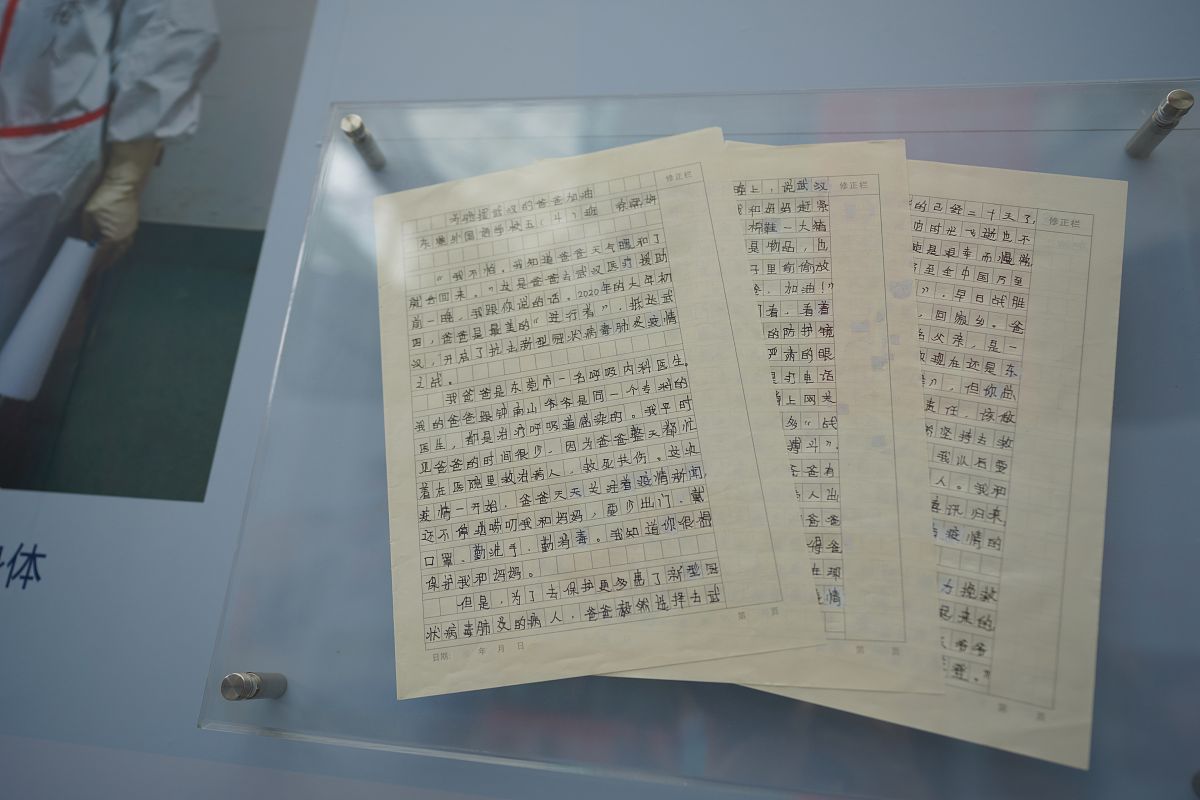 为驰援武汉的爸爸加油
东莞外国语学校五(4)班
"我不怕,我知道爸爸天气暖和了
就会回来。"这是爸爸去武汉医疗援助
前一晚,我跟你说的话。2020年的大年初
四,爸爸是最美的"逆行者",抵达武
汉,开启了抗击新型冠状病毒肺炎疫情
之战。
我爸爸是东莞市一名呼吸内科医生。
我的爸爸跟钟南山爷爷是同一个专科的
医生,都是治疗呼吸道感染的。我平时
见爸爸的时间很少,因为爸爸整天都忙
着在医院里救治病人,救死扶伤。这次
疫情一开始,爸爸天天关注着疫情新闻,
还不停地唠叨我和妈妈,要少出门、戴
口罩、勤洗手、勤消毒。我知道你很想
保护我和妈妈。
但是,为了去保护更多患了新型冠
状病毒肺炎的病人,爸爸毅然选择去武
修正栏
日期: 年 月 日
第 页
晚上,说武汉
我和妈妈赶紧
一大猪
物品,也
子里偷偷放
,加油!"
着,看着
的防护镜
严肃的眼
打电话
上网关
多"战
斗"。
爸有
人出
爸爸
得爸
在那
情
修正栏
第 页
的已经二十天了,
的时光飞逝也不
是艰辛而漫
至全中国万
",早日战胜
,回家乡。爸
父亲,是一
现在还是东
",但你
责任,该做
坚持去救
我以有爱
人。我和
喜讯归来,
疫情的
力挽救
起来的
爷爷
爱。"
修正栏
第 页
体